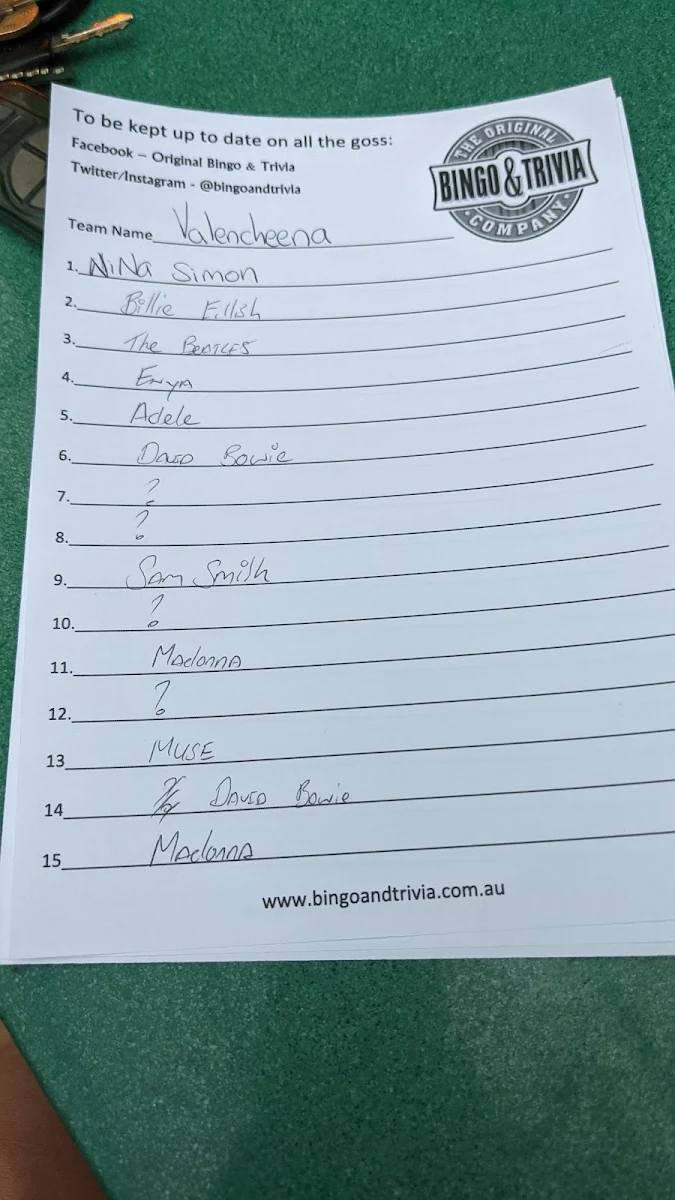 To be kept up to date on all the goss:
Facebook – Original Bingo & Trivia
Twitter/Instagram - @bingoandtrivia
THE ORIGINAL
BINGO & TRIVIA
COMPANY
Team Name Valencheena
1. NiNa Simon
2. Billie Eilish
3. The BEATLES
4. Enya
5. Adele
6. David Bowie
7. ?
8. ?
9. Sam Smith
10. ?
11. Madonna
12. ?
13 MUSE
14 DAVID Bowie
15 Madonna
www.bingoandtrivia.com.au